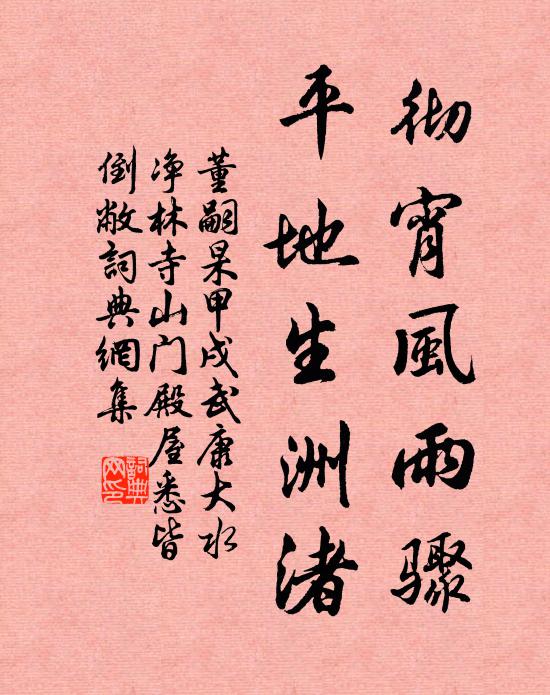 彻宵風雨驟
平地生洲渚
董嗣杲甲戌武康大水
净林寺山门殿屋悉皆
倒敝詞典網集
詞典网印